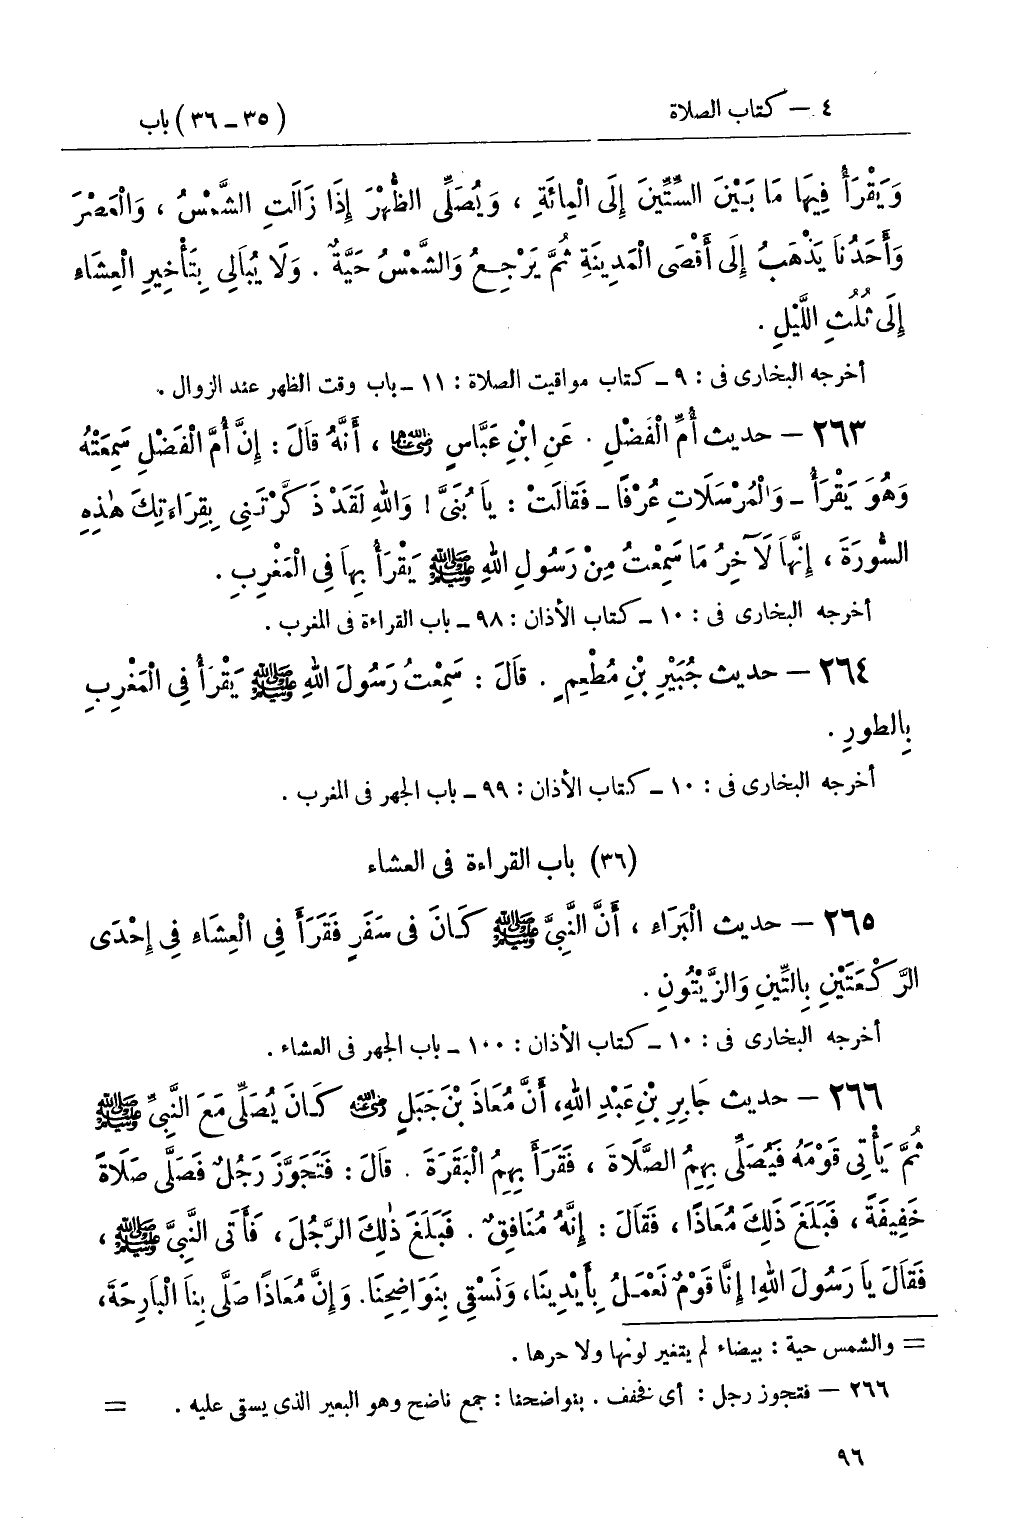 ٤ — كتاب الصلاة (٣٥ – ٣٦) باب
وَيَقْرَأُ فِيهَا مَا بَيْنَ السِّتِّينَ إِلَى الْمِائَةِ ، وَيُصَلِّى الظُّهْرَ إِذَا زَالَتِ الشَّمْسُ ، وَالْعَصْرَ
وَأَحَدُنَا يَذْهَبُ إِلَى أَقْصَى الْمَدِينَةِ ثُمَّ يَرْجِعُ وَالشَّمْسُ حَيَّةٌ . وَلَا يُبَالِى بِتَأْخِيرِ الْعِشَاءِ
إِلَى ثُلُثِ اللَّيْلِ .
أخرجه البخارى فى : ٩ – كتاب مواقيت الصلاة : ١١ – باب وقت الظهر عند الزوال .
٢٦٣ — حديث أُمِّ الْفَضْلِ . عَنِ ابْنِ عَبَّاسٍ رضي الله عنهما ، أَنَّهُ قَالَ : إِنَّ أُمَّ الْفَضْلِ سَمِعَتْهُ
وَهُوَ يَقْرَأُ – وَالْمُرْسَلَاتِ عُرْفًا – فَقَالَتْ : يَا بُنَىَّ ! وَاللهِ لَقَدْ ذَكَّرْتَنِى بِقِرَاءَتِكَ هٰذِهِ
السُّورَةَ ، إِنَّهَا لَآخِرُ مَا سَمِعْتُ مِنْ رَسُولِ اللهِ ﷺ يَقْرَأُ بِهَا فِى الْمَغْرِبِ .
أخرجه البخارى فى : ١٠ – كتاب الأذان : ٩٨ – باب القراءة فى المغرب .
٢٦٤ — حديث جُبَيْرِ بْنِ مُطْعِمٍ . قَالَ : سَمِعْتُ رَسُولَ اللهِ ﷺ يَقْرَأُ فِى الْمَغْرِبِ
بِالطورِ .
أخرجه البخارى فى : ١٠ – كتاب الأذان : ٩٩ – باب الجهر فى المغرب .
(٣٦) باب القراءة فى العشاء
٢٦٥ — حديث الْبَرَاءِ ، أَنَّ النَّبِىَّ ﷺ كَانَ فى سَفَرٍ فَقَرَأَ فِى الْعِشَاءِ فِى إِحْدَى
الرَّكْعَتَيْنِ بِالتِّينِ وَالزَّيْتُونِ .
أخرجه البخارى فى : ١٠ – كتاب الأذان : ١٠٠ – باب الجهر فى العشاء .
٢٦٦ — حديث جَابِرِ بْنِ عَبْدِ اللهِ، أَنَّ مُعَاذَ بْنَ جَبَلٍ رضي الله عنه كَانَ يُصَلِّى مَعَ النَّبِىِّ ﷺ
ثُمَّ يَأْتِى قَوْمَهُ فَيُصَلِّى بِهِمُ الصَّلَاةَ ، فَقَرَأَ بِهِمُ الْبَقَرَةَ . قَالَ : فَتَجَوَّزَ رَجُلٌ فَصَلَّى صَلَاةً
خَفِيفَةً ، فَبَلَغَ ذَلِكَ مُعَاذًا ، فَقَالَ : إِنَّهُ مُنَافِقٌ . فَبَلَغَ ذٰلِكَ الرَّجُلَ ، فَأَتَى النَّبِىَّ ﷺ ،
فَقَالَ يَا رَسُولَ اللهِ! إِنَّا قَوْمٌ نَعْمَلُ بِأَيْدِينَا، وَنَسْقِى بِنَوَاضِحِنَا. وَإِنَّ مُعَاذًا صَلَّى بِنَا الْبَارِحَةَ،
= والشمس حية : بيضاء لم يتغير لونها ولا حرها .
٢٦٦ — فتجوز رجل : أى نخفف . بنواضحنا : جمع ناضح وهو البعير الذى يسقى عليه . =
٩٦